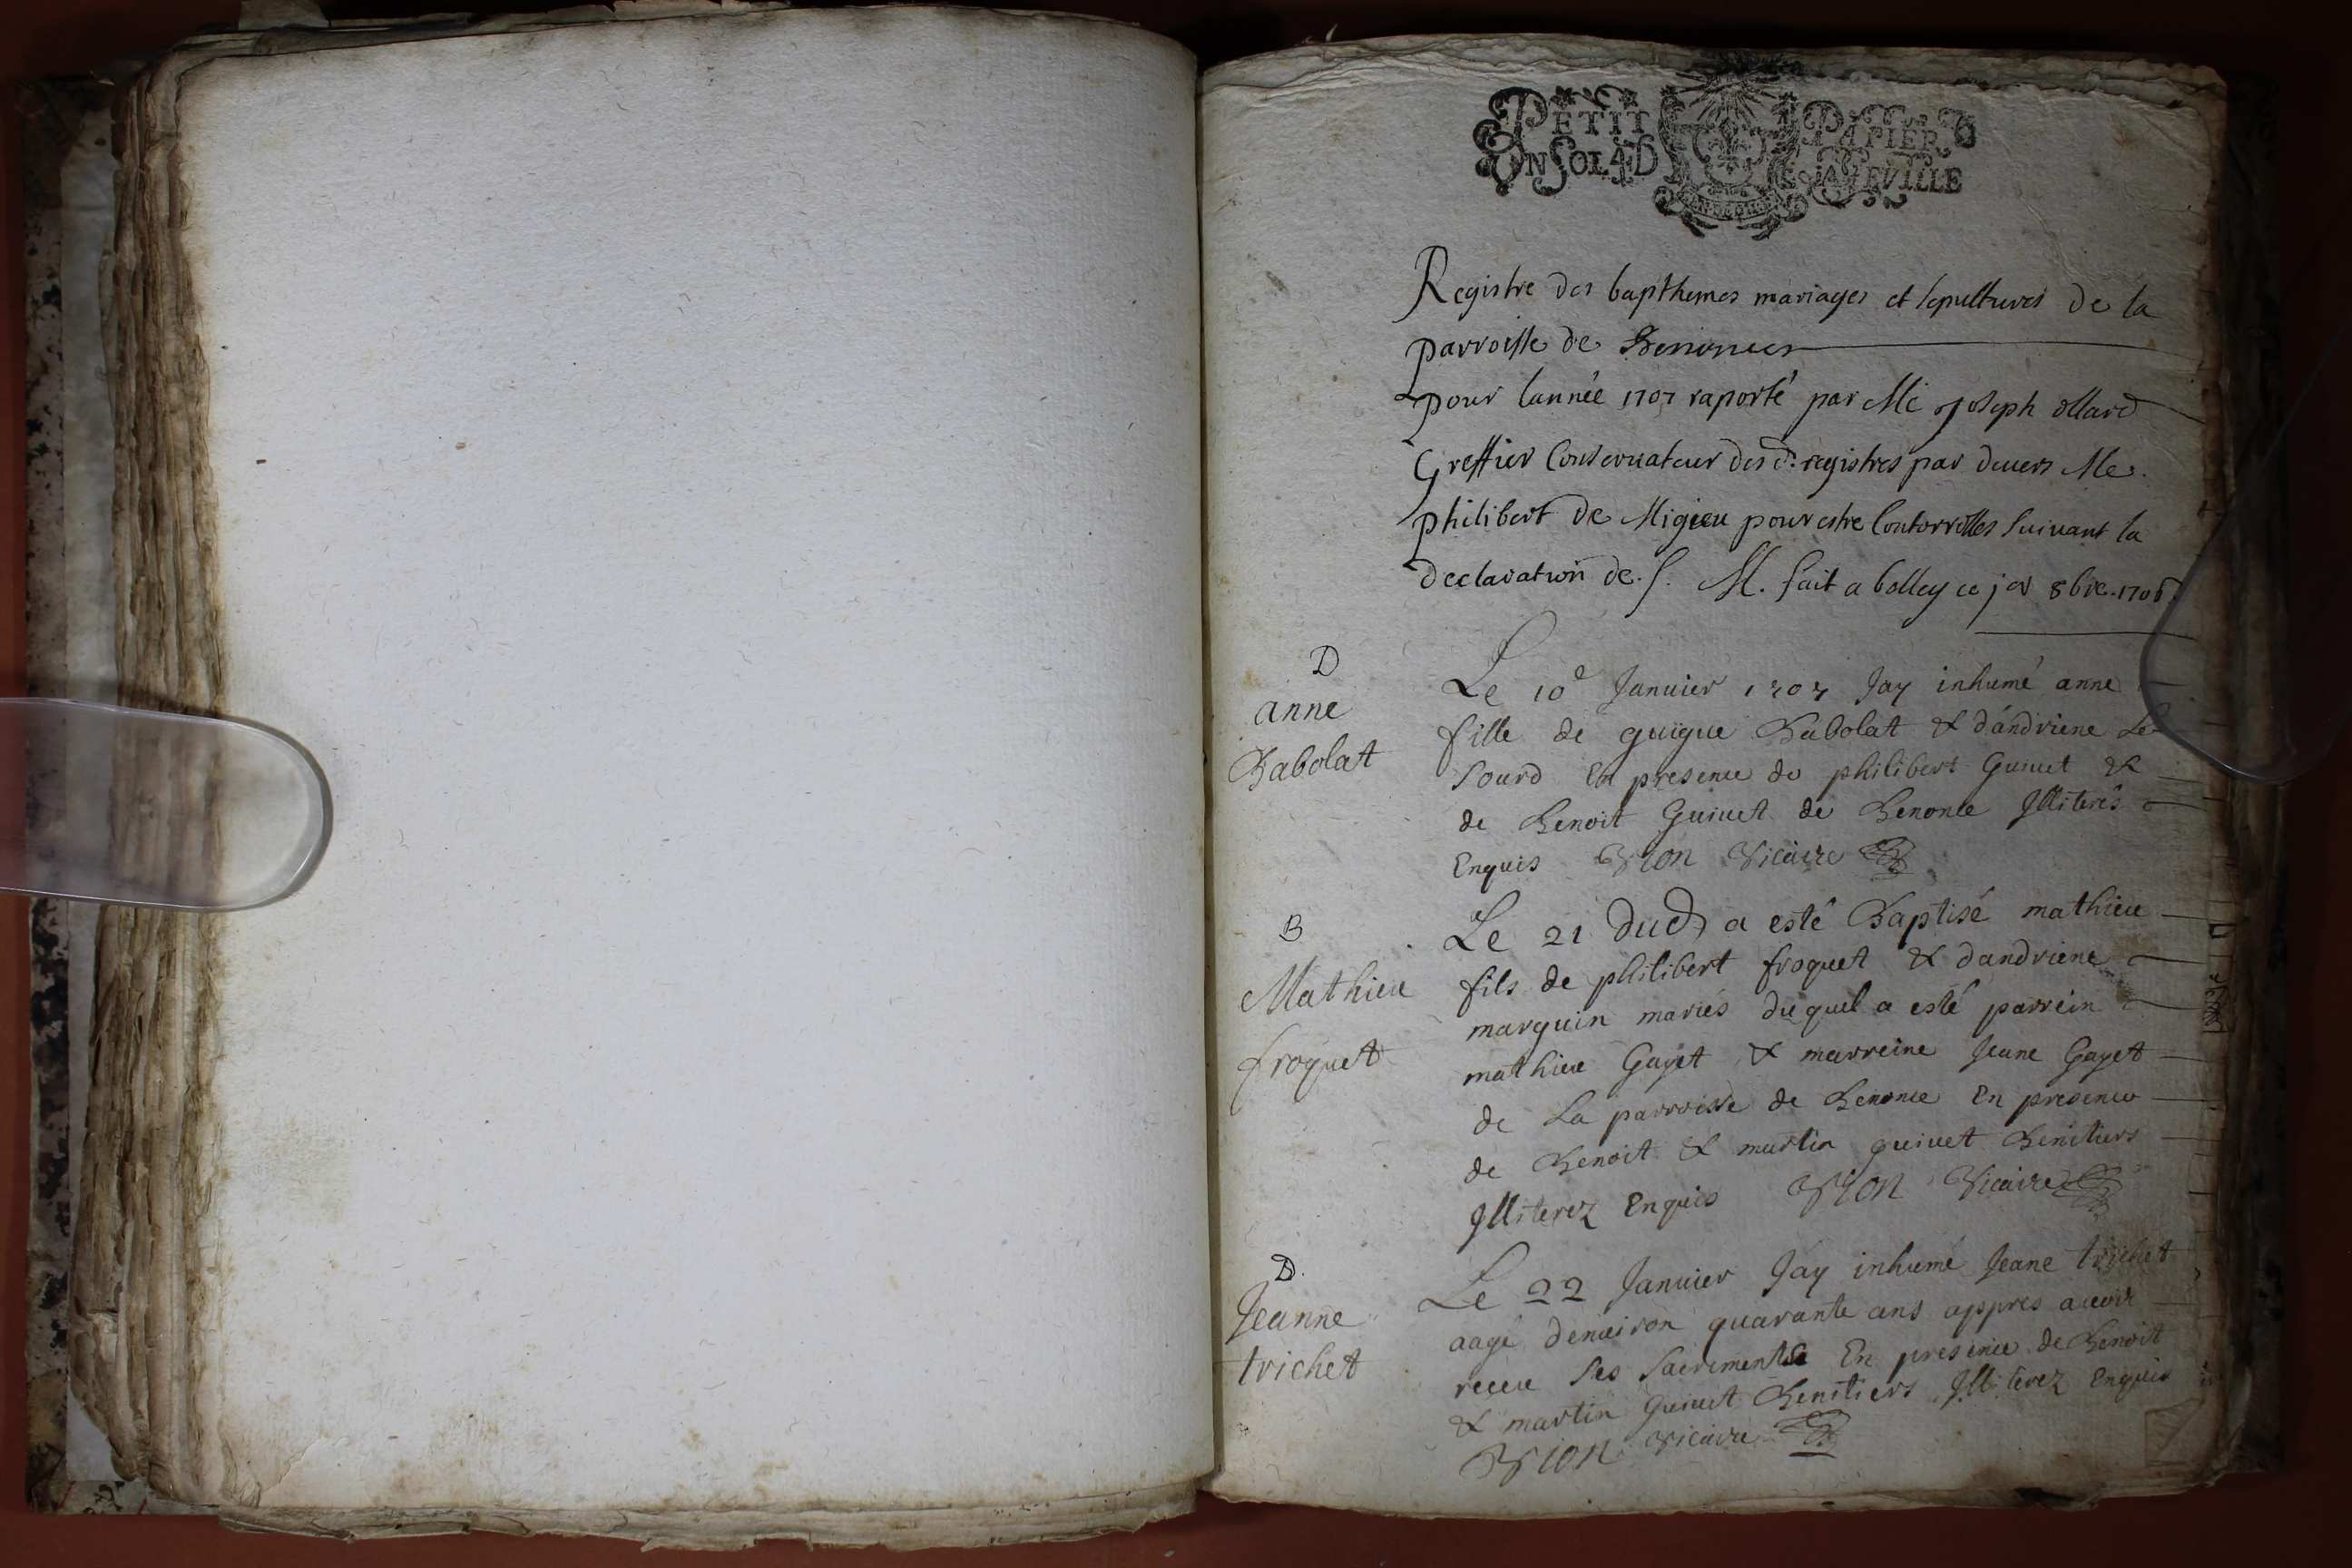 PETIT PAPIER
UN SOL 4 D LA FEVILLE
Registre des bapthemes mariages et sepultures de la
parroisse de
pour lannée 1707 raporté par Me joseph ollard
Greffier Conservateur des d. registres par devers Me.
philibert de Migieu pour estre Controrolles suivant la
declaration de S. M. fait a belley ce jer 8bre. 1706
D
anne
Babolat
Le 10e Januier 1707 Jay inhumé anne
fille de guigue Babolat & dandriene Le
Sourd En presence de philibert Guiuet &
de Benoit Guiuet de Benonce Illiterés
Enquis Vion Vicaire
B
Mathieu
froquet
Le 21 dud a esté Baptisé mathieu
fils de philibert froquet & dandriene
marquin mariés duquel a esté parrein
mathieu Gayet & marreine Jeane Gayet
de La parroisse de Benonce En presence
de Benoit & martin guiuet Benitiers
Illiterez Enquis Vion Vicaire
D.
Jeanne
trichet
Le 22 Januier Jay inhumé Jeane trichet
aagé denuiron quarante ans appres auoir
receu Ses Sacrements En presence de Benoit
& martin Guiuet Benitiers Illiterez Enquis
Vion Vicaire